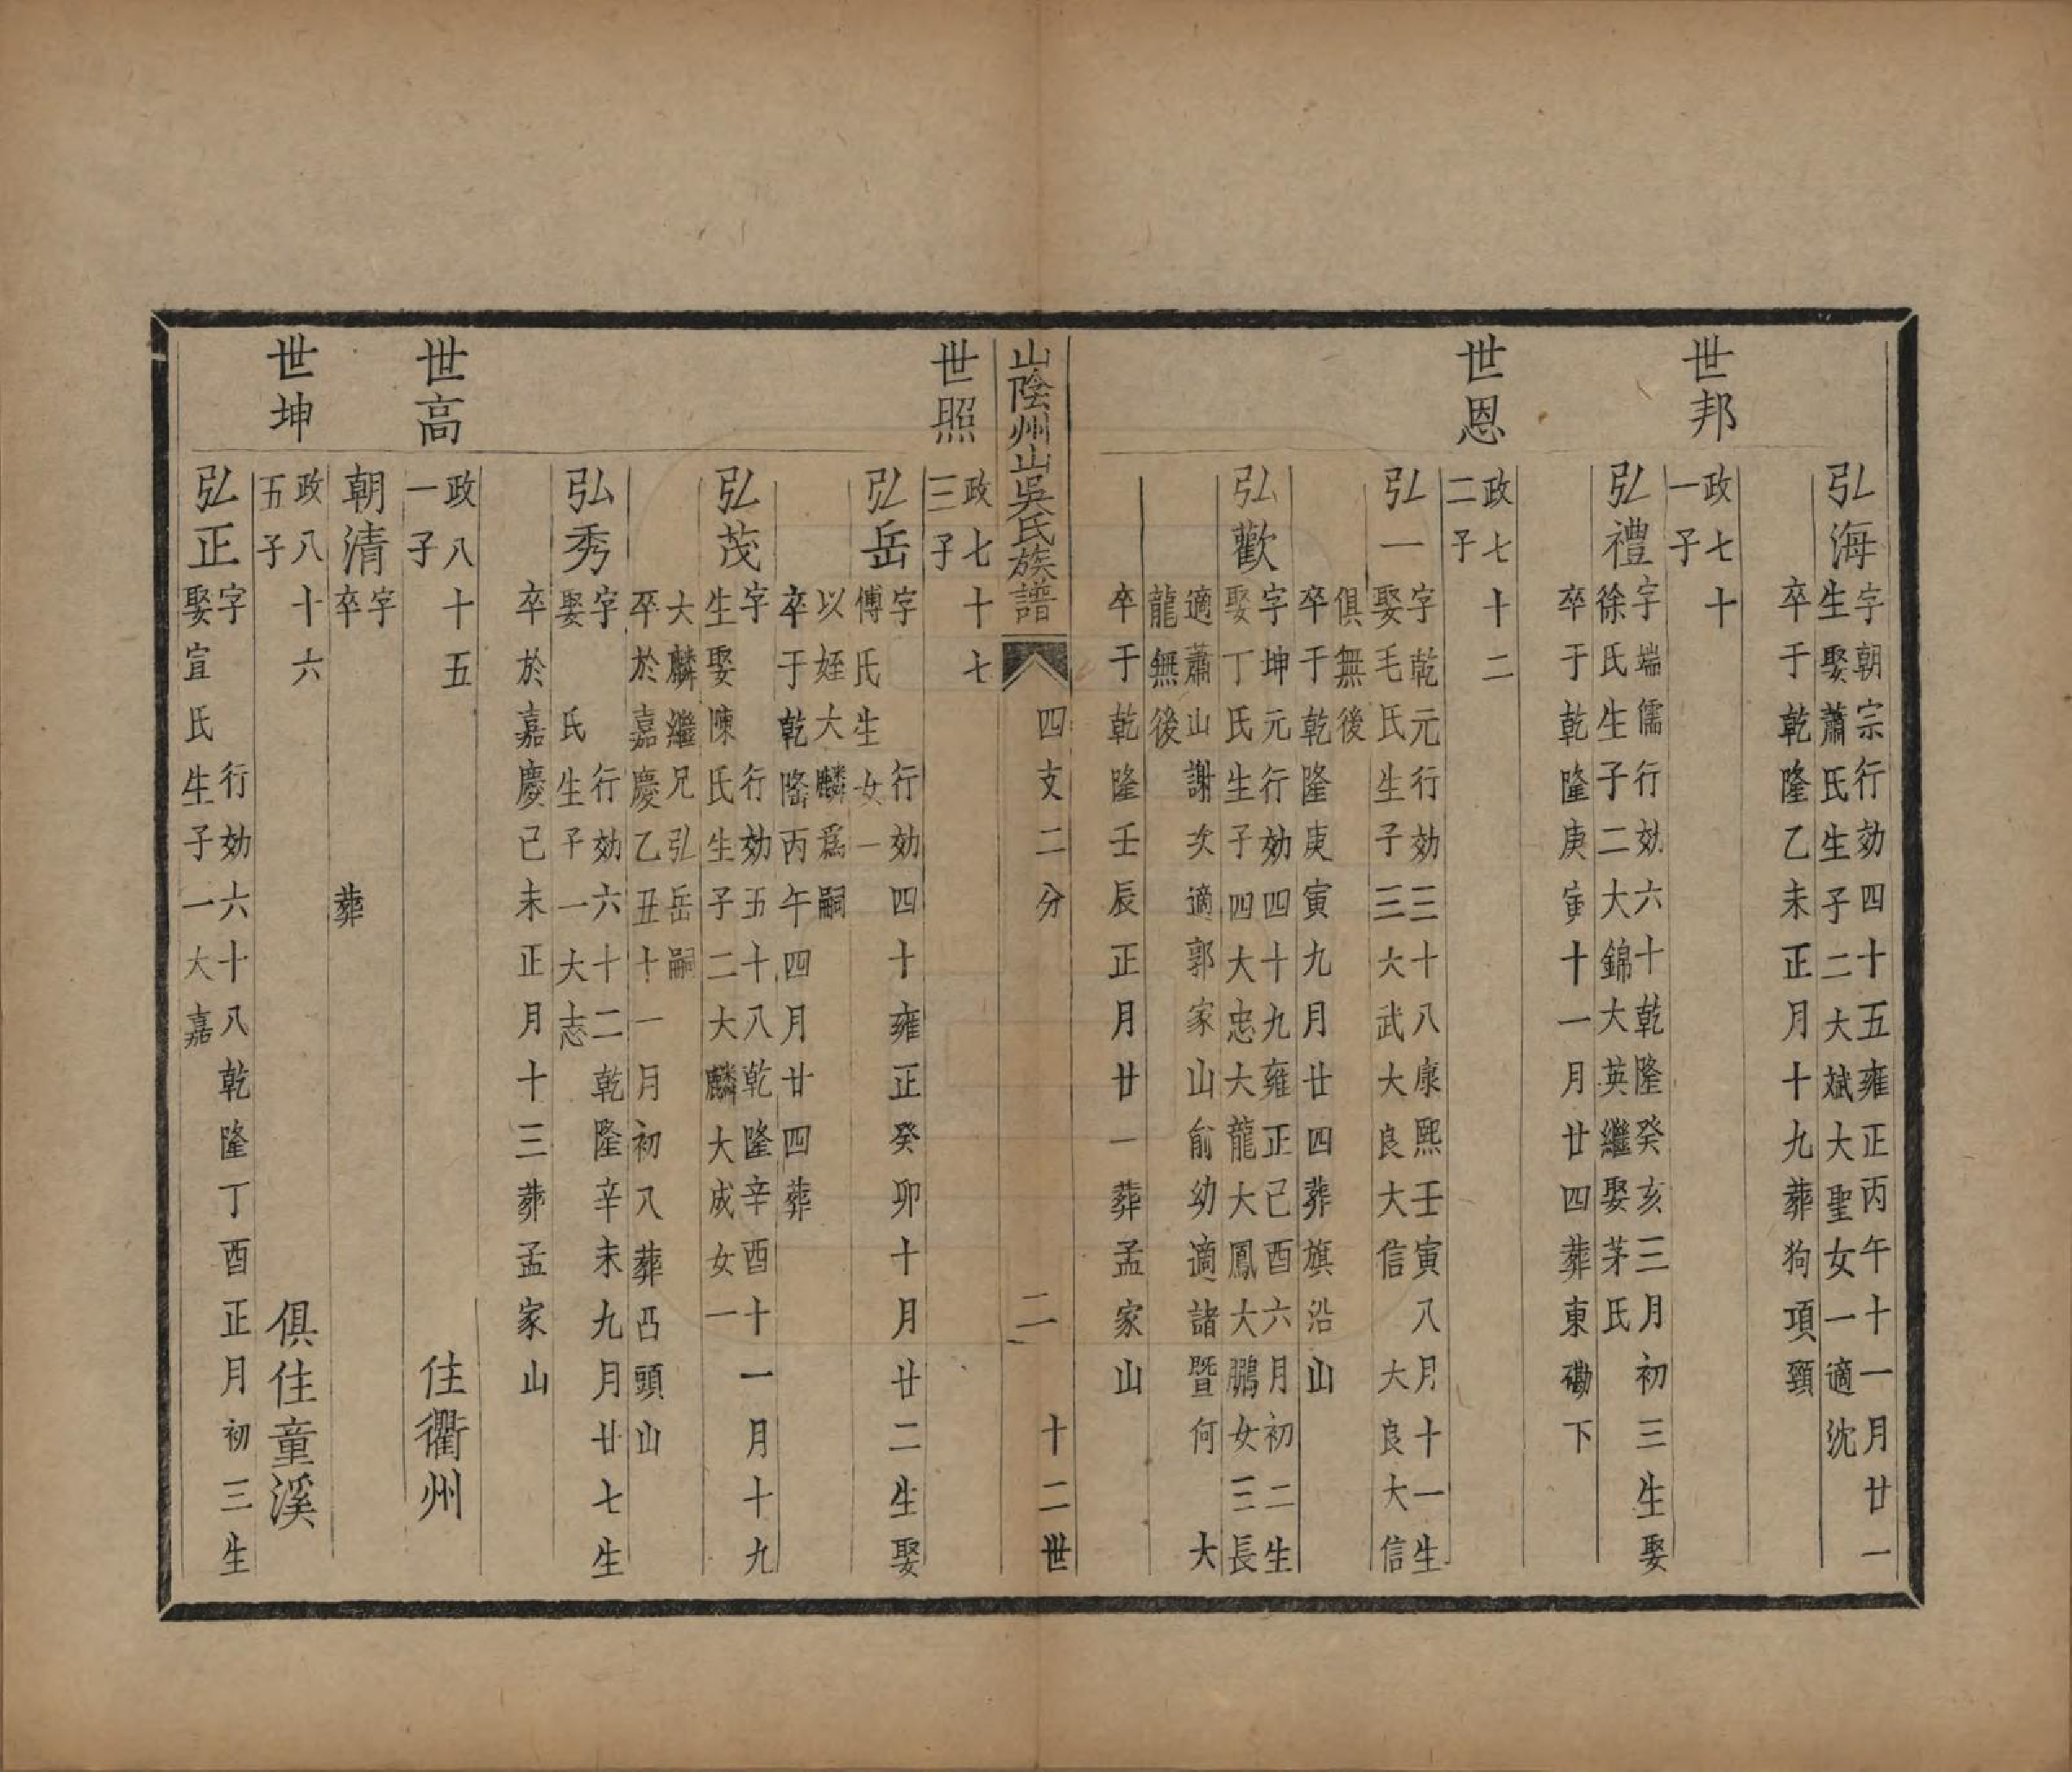 弘海
字朝宗行効四十五雍正丙午十一月廿一
生娶蕭氏生子二大斌大聖女一適沈
卒于乾隆乙未正月十九葬狗項頸
世邦
政七十
一子
弘禮
字端儒行効六十乾隆癸亥三月初三生娶
徐氏生子二大錦大英繼娶茅氏
卒于乾隆庚寅十一月廿四葬東磡下
世恩
政七十二
二子
弘一
字乾元行効三十八康熙壬寅八月十一生
娶毛氏生子三大武大良大信大良大信
俱無後
卒于乾隆庚寅九月廿四葬旗沿山
弘歡
字坤元行効四十九雍正己酉六月初二生
娶丁氏生子四大忠大龍大鳳大鵬女三長
適蕭山謝次適郭家山俞幼適諸暨何大
龍無後
卒于乾隆壬辰正月廿一葬孟家山
山陰州山吳氏族譜 四支二分 二 十二世
世照
政七十七
三子
弘岳
字 行効四十雍正癸卯十月廿二生娶
傅氏生女一
以姪大麟爲嗣
卒于乾隆丙午四月廿四葬
弘茂
字 行効五十八乾隆辛酉十一月十九
生娶陳氏生子二大麟大成女一
大麟繼兄弘岳嗣
卒於嘉慶乙丑十一月初八葬凸頭山
弘秀
字 行効六十二乾隆辛未九月廿七生
娶 氏生子一大志
卒於嘉慶己未正月十三葬孟家山
世高
政八十五
一子
住衢州
朝清
字
卒 葬
世坤
政八十六
五子
俱住童溪
弘正
字 行効六十八乾隆丁酉正月初三生
娶宣氏生子一大嘉